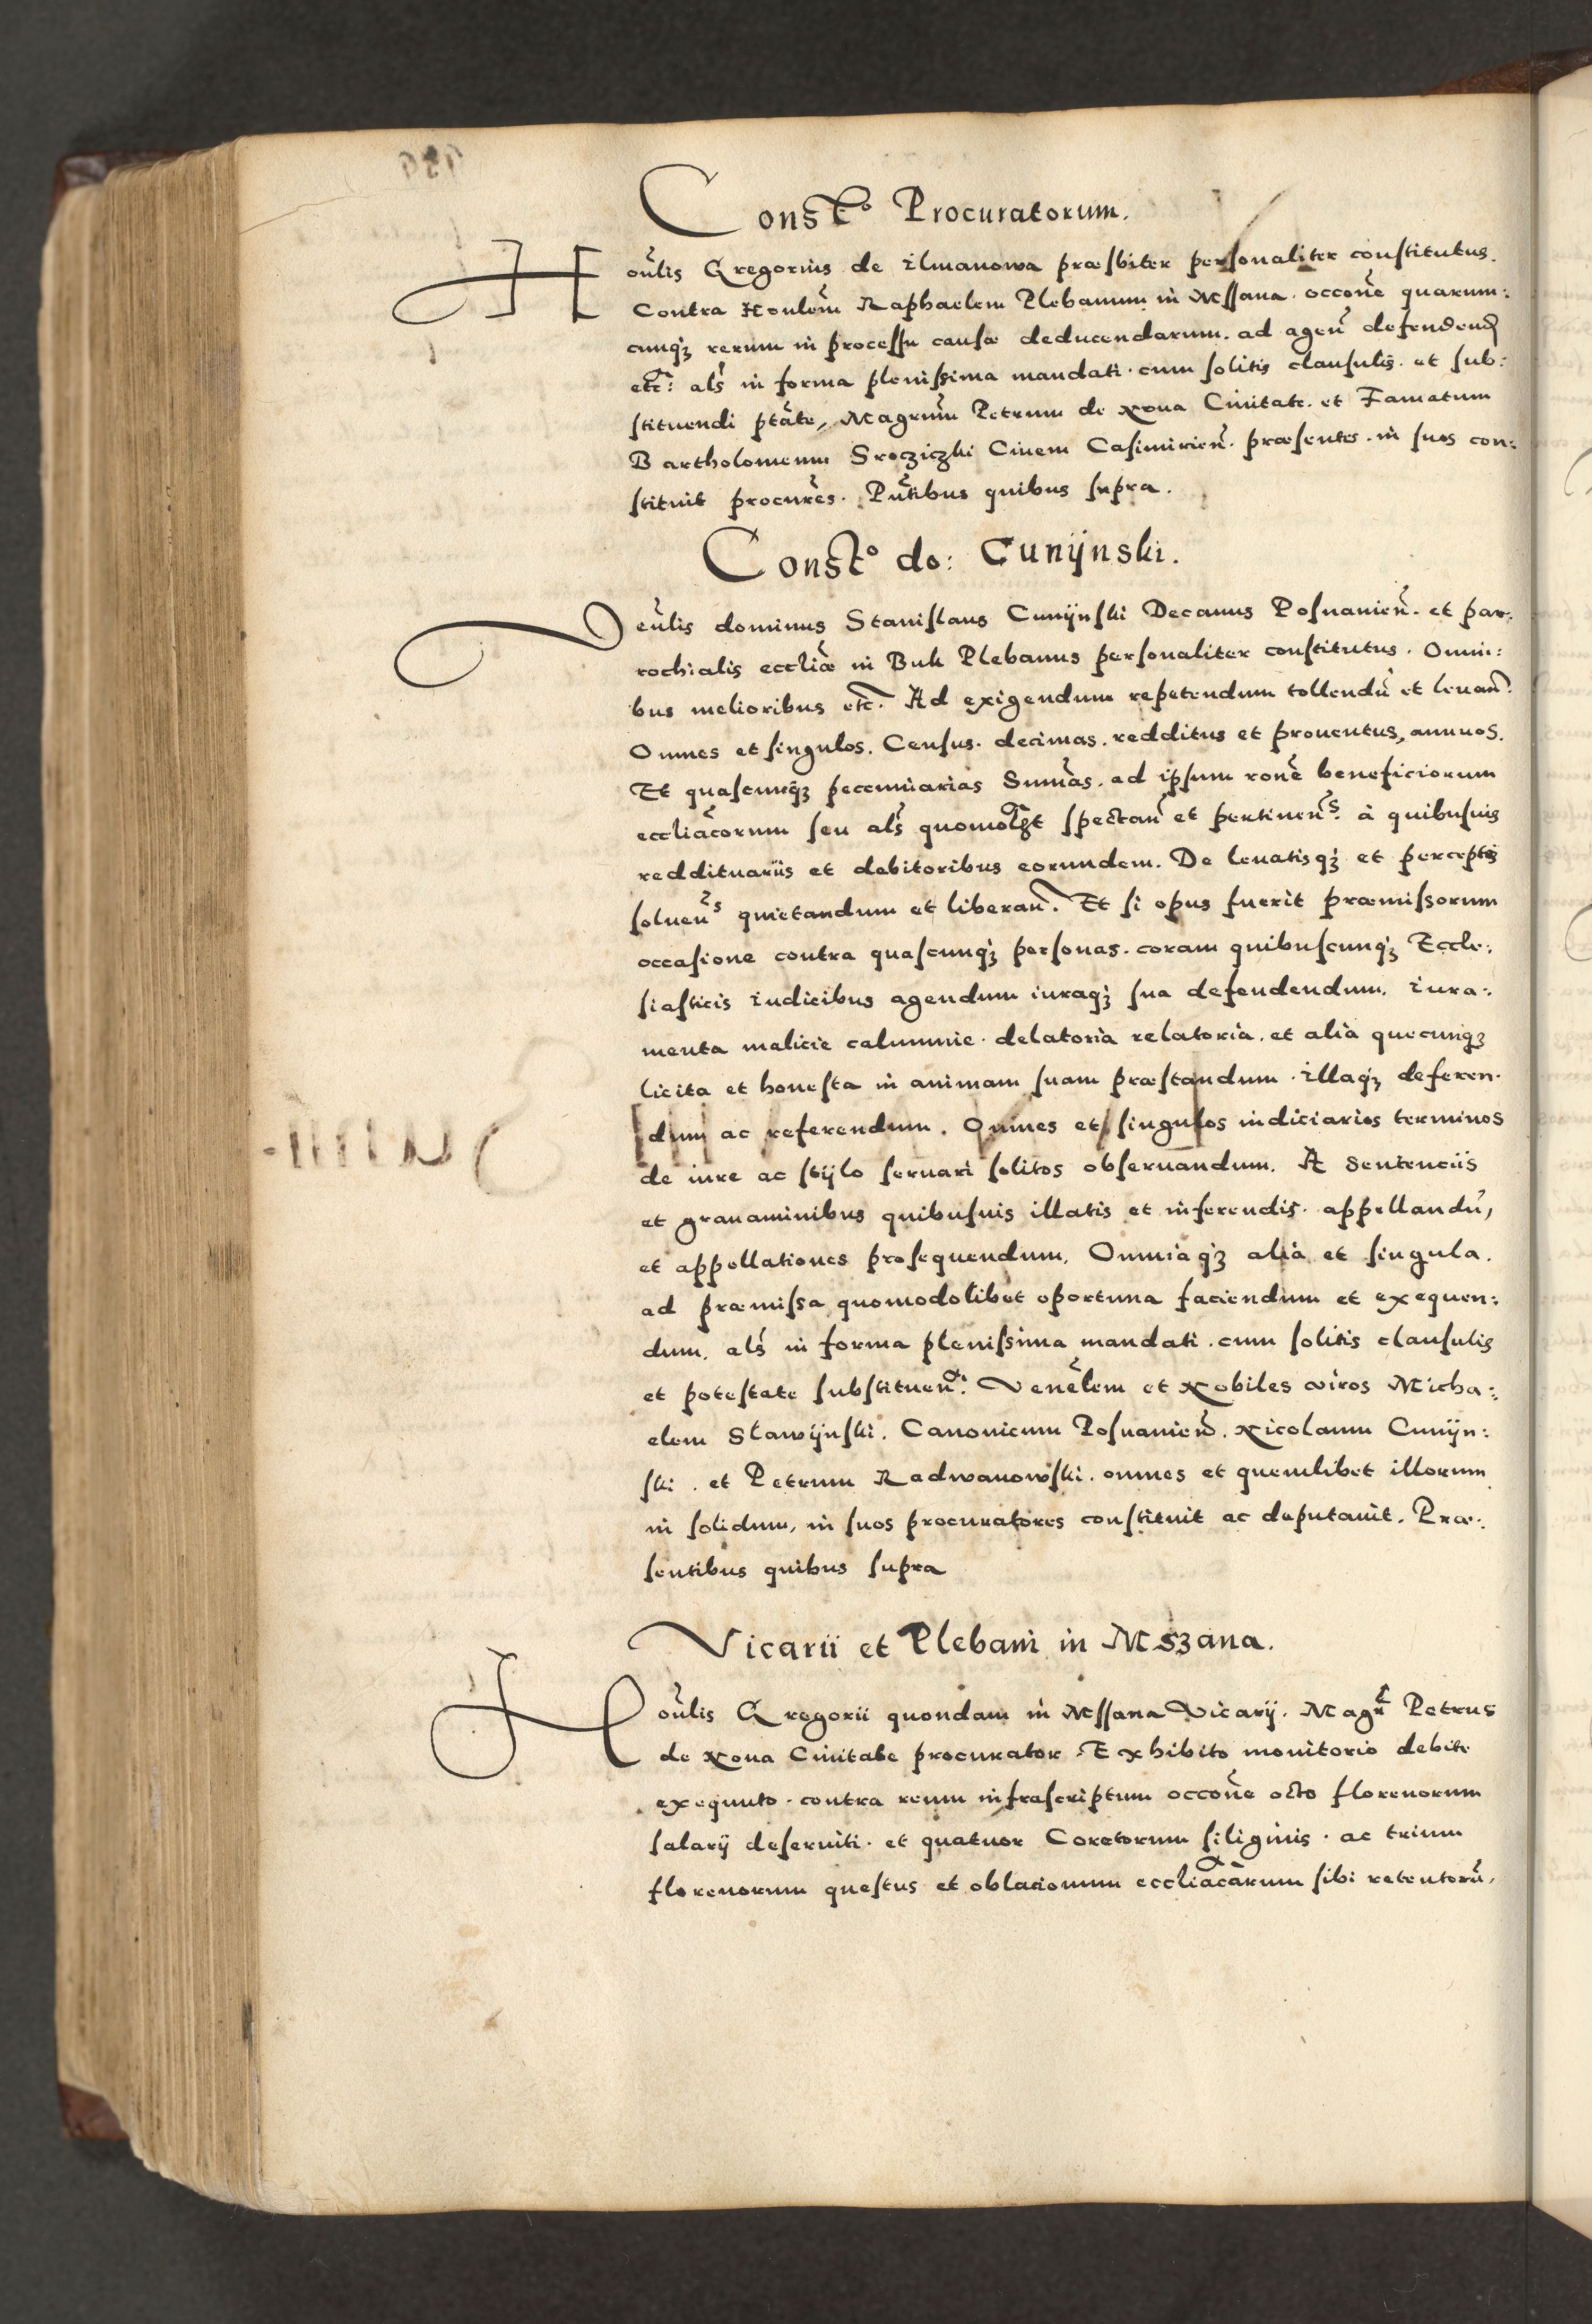 Consto Procuratorum.
Honlis Gregorius de ilmanowa præsbiter personaliter constitutus.
Contra Honlem Raphaelem Plebanum in Mssana. occone quarum:
cunqz rerum in processu causæ deducendarum. ad agen defendend
etc: als in forma plenissima mandati. cum solitis clausulis. et sub:
stituendi ptate, Magrum Petrum de Noua Ciuitate. et Famatum
Bartholomeum Srocziczki Ciuem Casimirien. præsentes. in suos con:
stituit procures. Pntibus quibus supra.
Consto do: Cunijnski.
Venlis dominus Stanislaus Cunijnski Decanus Posnanien. et par:
rochialis eccliæ in Buk Plebanus personaliter constitutus. Omni:
bus melioribus etc. Ad exigendum repetendum tollendu et leuan.
Omnes et singulos. Census. decimas. redditus et prouentus, annuos.
Et quascunqz pecuniarias Sumas. ad ipsum rone beneficiorum
eccliacorum seu als quomolibt spectan et pertinens. à quibusuis
reddituariis et debitoribus eorundem. De leuatisqz et perceptis
soluens quietandum et liberan. Et si opus fuerit præmissorum
occasione contra quascunqz personas. coram quibuscunqz Eccle:
siasticis iudicibus agendum iuraqz sua defendendum. iura:
menta malicie calumnie. delatoria relatoria. et alia quecunqz
licita et honesta in animam suam præstandum. illaqz deferen.
dum ac referendum. Omnes et singulos iudiciarios terminos
de iure ac stijlo seruari solitos obseruandum. A Sentenciis
et grauaminibus quibusuis illatis et inferendis. appellandu,
et appellationes prosequendum. Omniaqz alia et singula.
ad præmissa quomodolibet oportuna faciendum et exequen:
dum. als in forma plenissima mandati. cum solitis clausulis
et potestate substituen. Venelem et Nobiles viros Micha:
elem Slawijnski. Canonicum Posnanien. Nicolaum Cunijn:
ski. et Petrum Radwanowski. omnes et quemlibet illorum
in solidum, in suos procuratores constituit ac deputauit. Præ:
sentibus quibus supra
Vicarii et Plebani in Mszana.
Honlis Gregorii quondam in Mssana Vicarij. Magr Petrus
de Noua Ciuitate procurator. Exhibito monitorio debite
exequuto. contra reum infrascriptum occone octo florenorum
salarij deseruiti. et quatuor Coretorum siliginis. ac trium
florenorum questus et oblationum eccliacarum sibi retentoru,